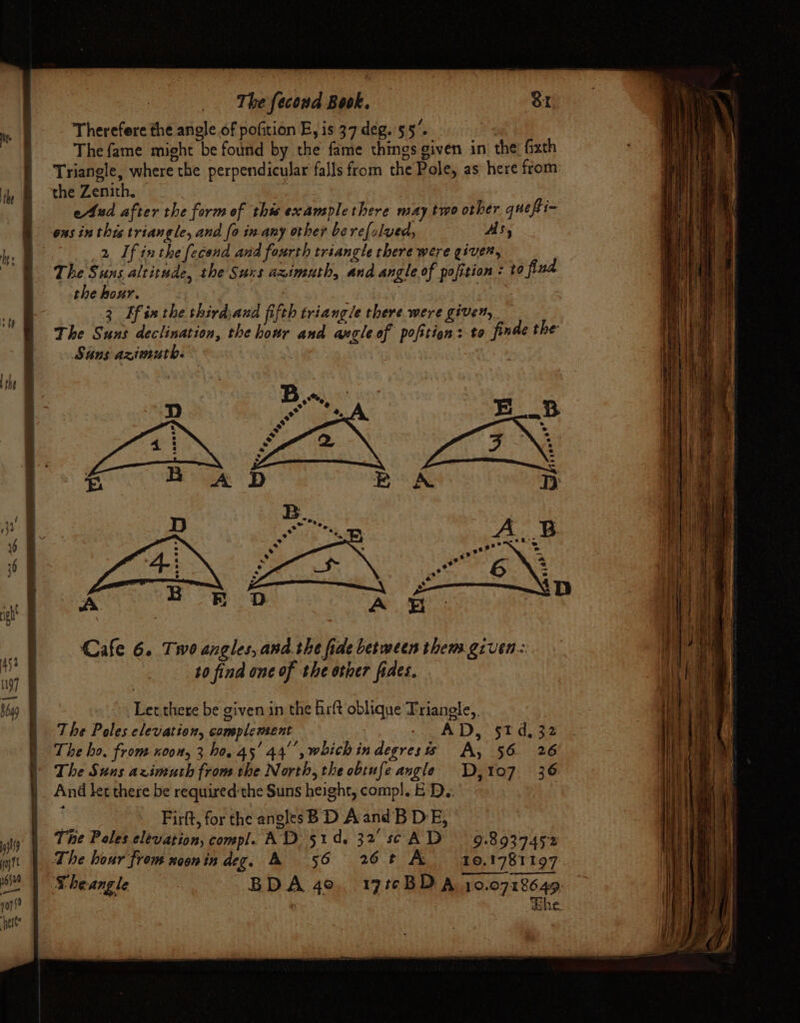 The ſecond Book. 81
Therefore the angle of poſition E, is 37 deg. 55′.
The ſame might be found by the ſame things given in the ſixth
Triangle, where the perpendicular falls from the Pole, as here from
the Zenith.
And after the form of this example there may two other queſti-
ons in this triangle, and ſo in any other be reſolued, As,
2 If in the ſecond and fourth triangle there were given,
The Suns altitude, the Suns azimuth, and angle of poſition : to find
the hour.
3 If in the third, and fifth triangle there were given,
The Suns declination, the hour and angle of poſition : to finde the
Suns azimuth.
D B A E B
1 2 3
E B A D E A D
D B E A B
4 5 6
A B E D A E D
Caſe 6. Two angles, and the ſide between them given :
to find one of the other ſides.
Let there be given in the firſt oblique Triangle,
The Poles elevation, complement AD, 51d, 32
The ho. from noon, 3 ho. 45′ 44″, which in degrees is A, 56 26
The Suns azimuth from the North, the obtuſe angle D, 107 36
And let there be required the Suns height, compl. E D.
Firſt, for the angles B D A and B D E,
The Poles elevation, compl. A D 51 d. 32′ sc A D 9.8937452
The hour from noon in deg. A 56 26 t A 10.1781197
The angle B D A 40 17 tc B D A 10.0718649
The